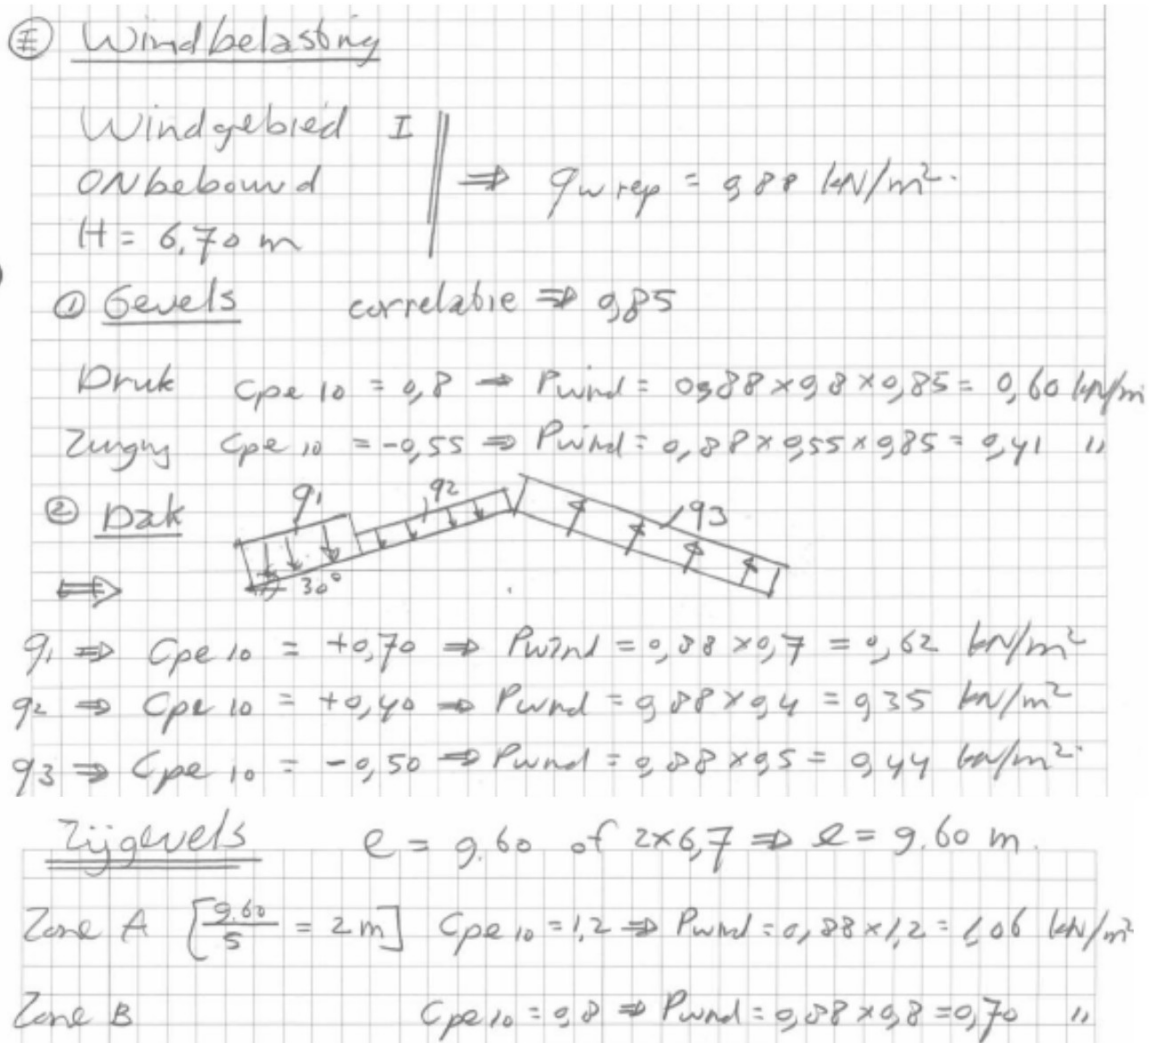 Ⓘ Windbelasting
Windgebied I
ONbebouwd ⇒ qw rep = 0,88 kN/m².
H = 6,70 m
① Gevels correlatie ⇒ 0,85
Druk Cpe 10 = 0,8 → Pwind = 0,88 × 0,8 × 0,85 = 0,60 kN/m
Zuiging Cpe 10 = -0,55 ⇒ Pwind = 0,88 × 0,55 × 0,85 = 0,41 "
② Dak q1 q2 q3
⇒ 30°
q1 ⇒ Cpe 10 = +0,70 ⇒ Pwind = 0,88 × 0,7 = 0,62 kN/m²
q2 ⇒ Cpe 10 = +0,40 ⇒ Pwind = 0,88 × 0,4 = 0,35 kN/m²
q3 ⇒ Cpe 10 = -0,50 ⇒ Pwind = 0,88 × 0,5 = 0,44 kN/m².
Zijgevels e = 9.60 of 2×6,7 ⇒ e = 9.60 m.
Zone A [9.60/5 = 2 m] Cpe 10 = 1,2 ⇒ Pwind = 0,88 × 1,2 = 1,06 kN/m²
Zone B Cpe 10 = 0,8 ⇒ Pwind = 0,88 × 0,8 = 0,70 "